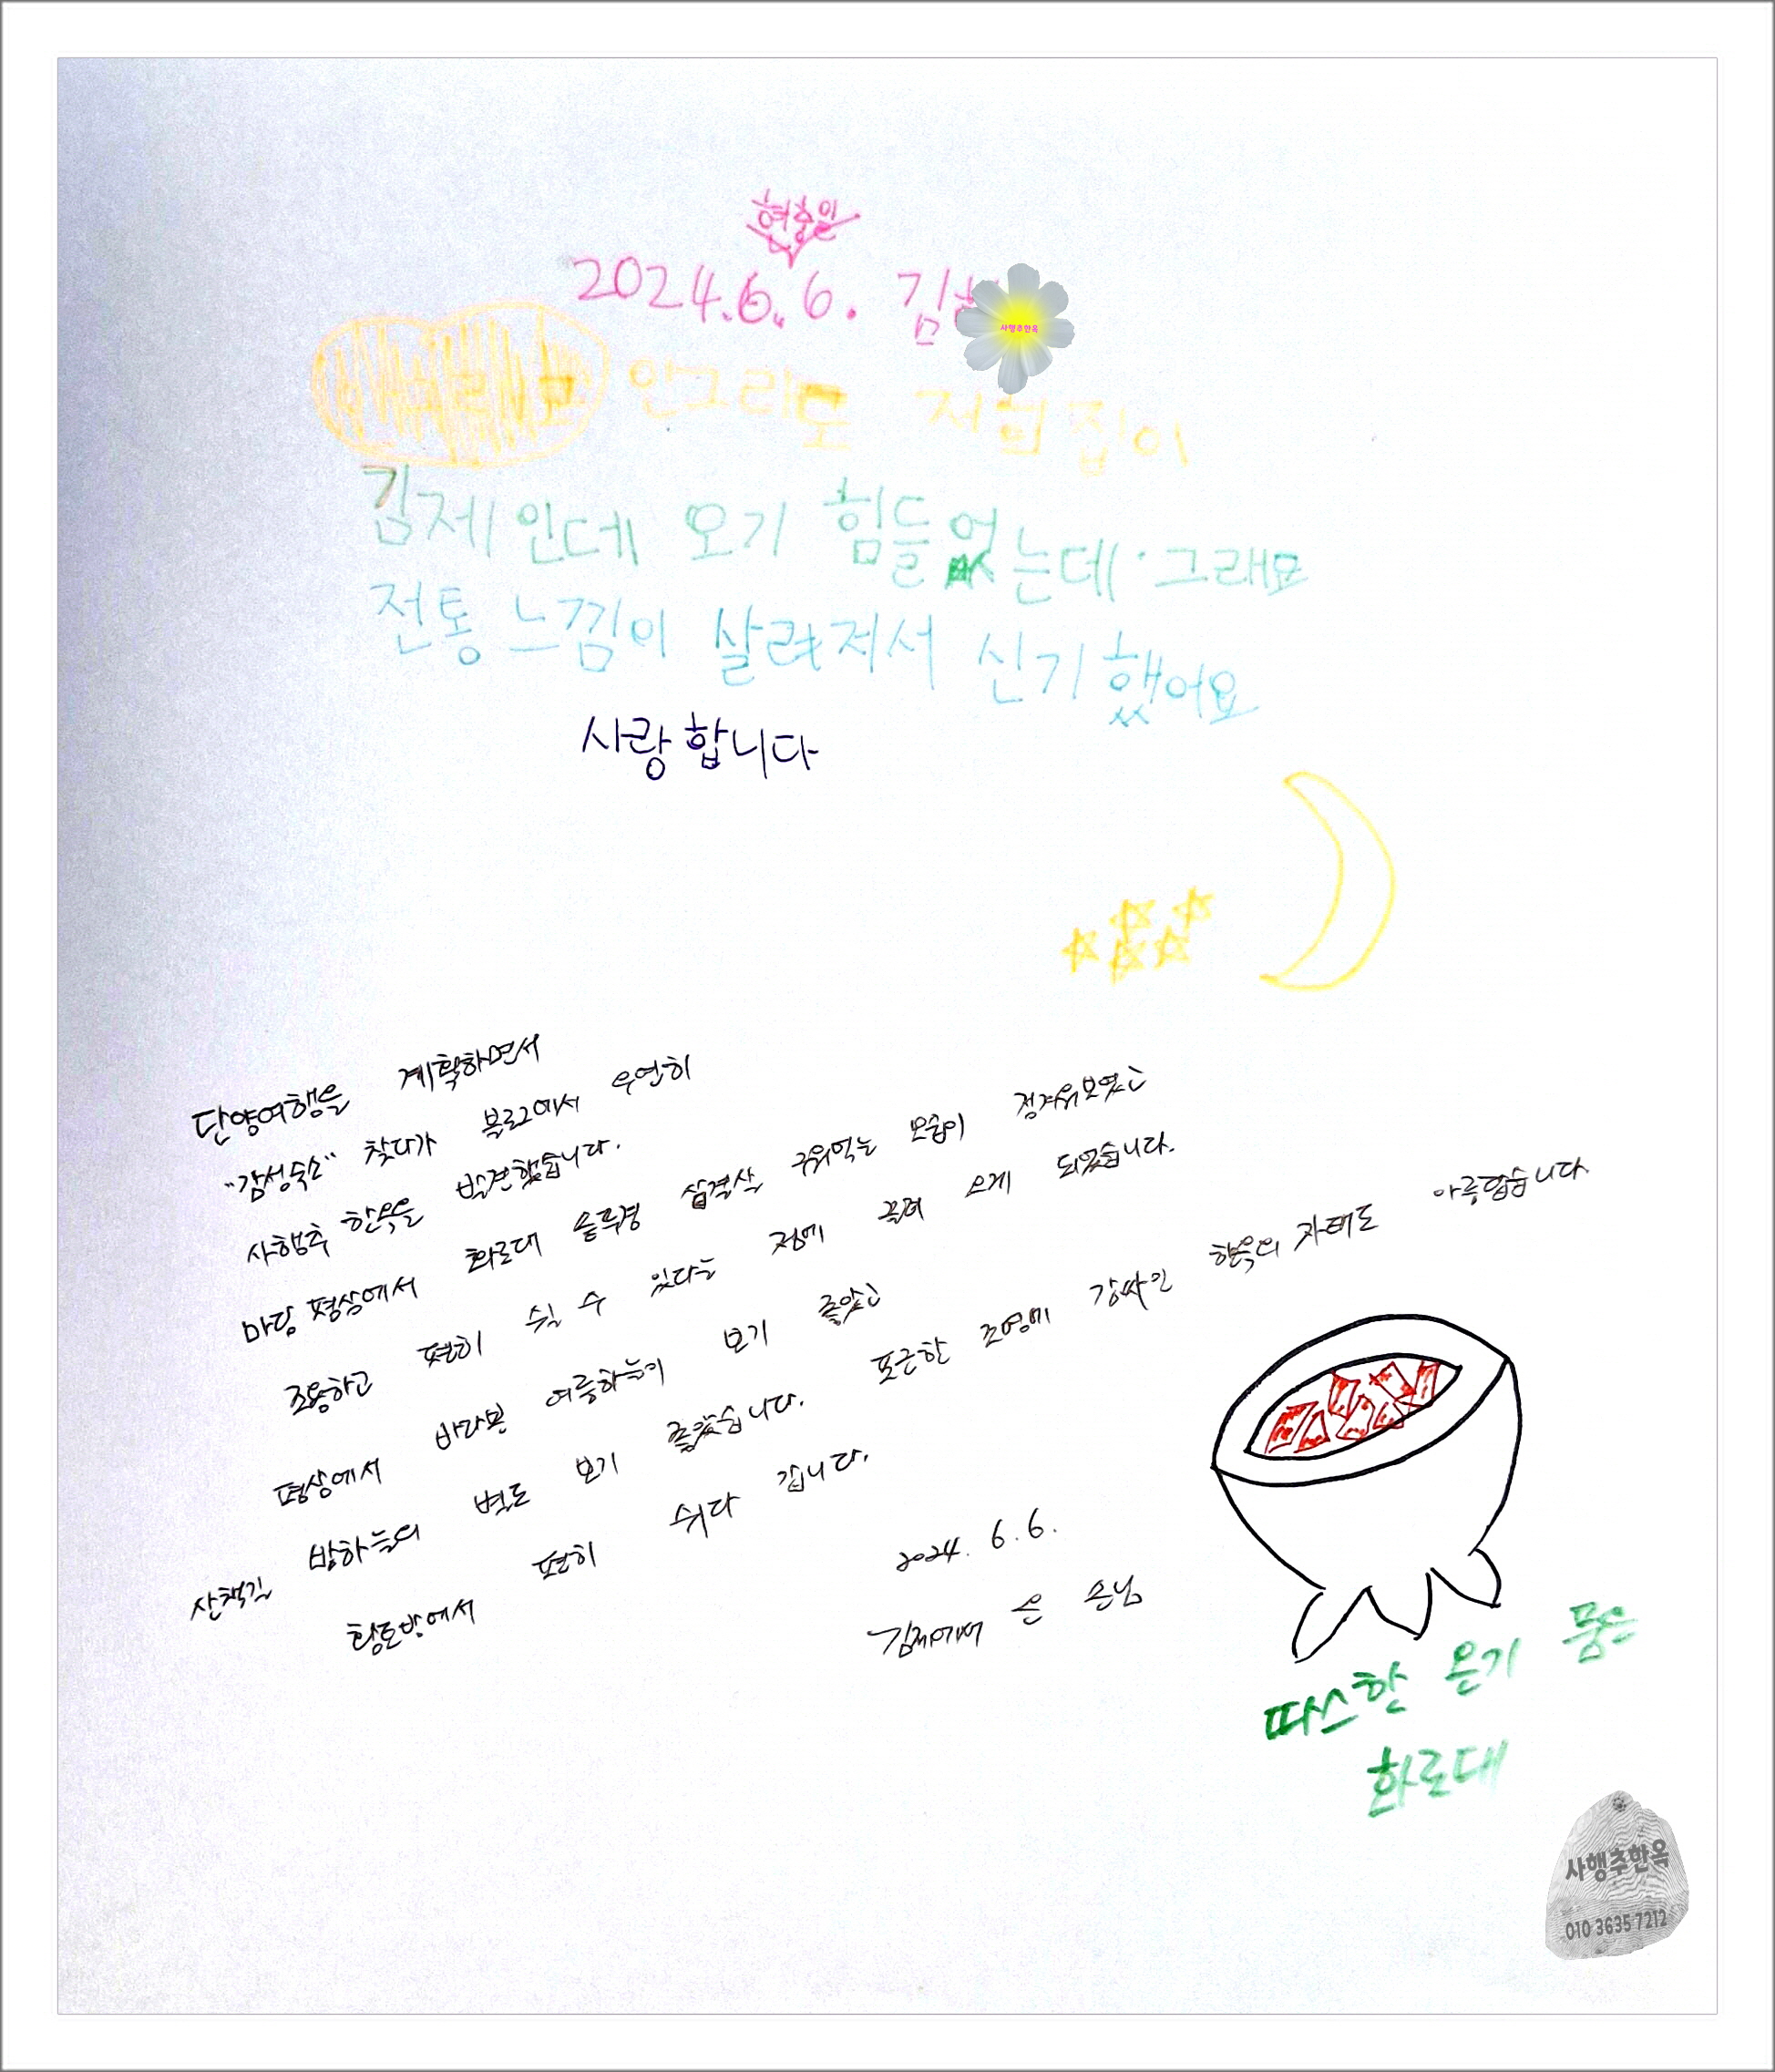 현충일
2024.6.6. 김
사행추한옥
안그라도 저희집이
김제인데 오기 힘들었는데·그래요
전통 느낌이 살려져서 신기했어요
사랑합니다
단양여행을 계획하면서
"감성숙소" 찾다가 블로그에서 우연히
사행추 한옥을 발견했습니다.
마당 평상에서 화로대 솥뚜껑 삼겹살 구워먹는 모습이 정겨워보였고
조용하고 편히 쉴 수 있다는 점에 끌려 오게 되었습니다.
평상에서 바라본 여름하늘이 보기 좋았고
밤하늘의 별도 보기 좋았습니다. 포근한 조명에 감싸인 한옥의 자태도 아름답습니다.
산책길
황토방에서 편히 쉬다 갑니다.
2024. 6. 6.
김제에서 온 손님
따스한 온기 품은
화로대
사행추한옥
010 3635 7212